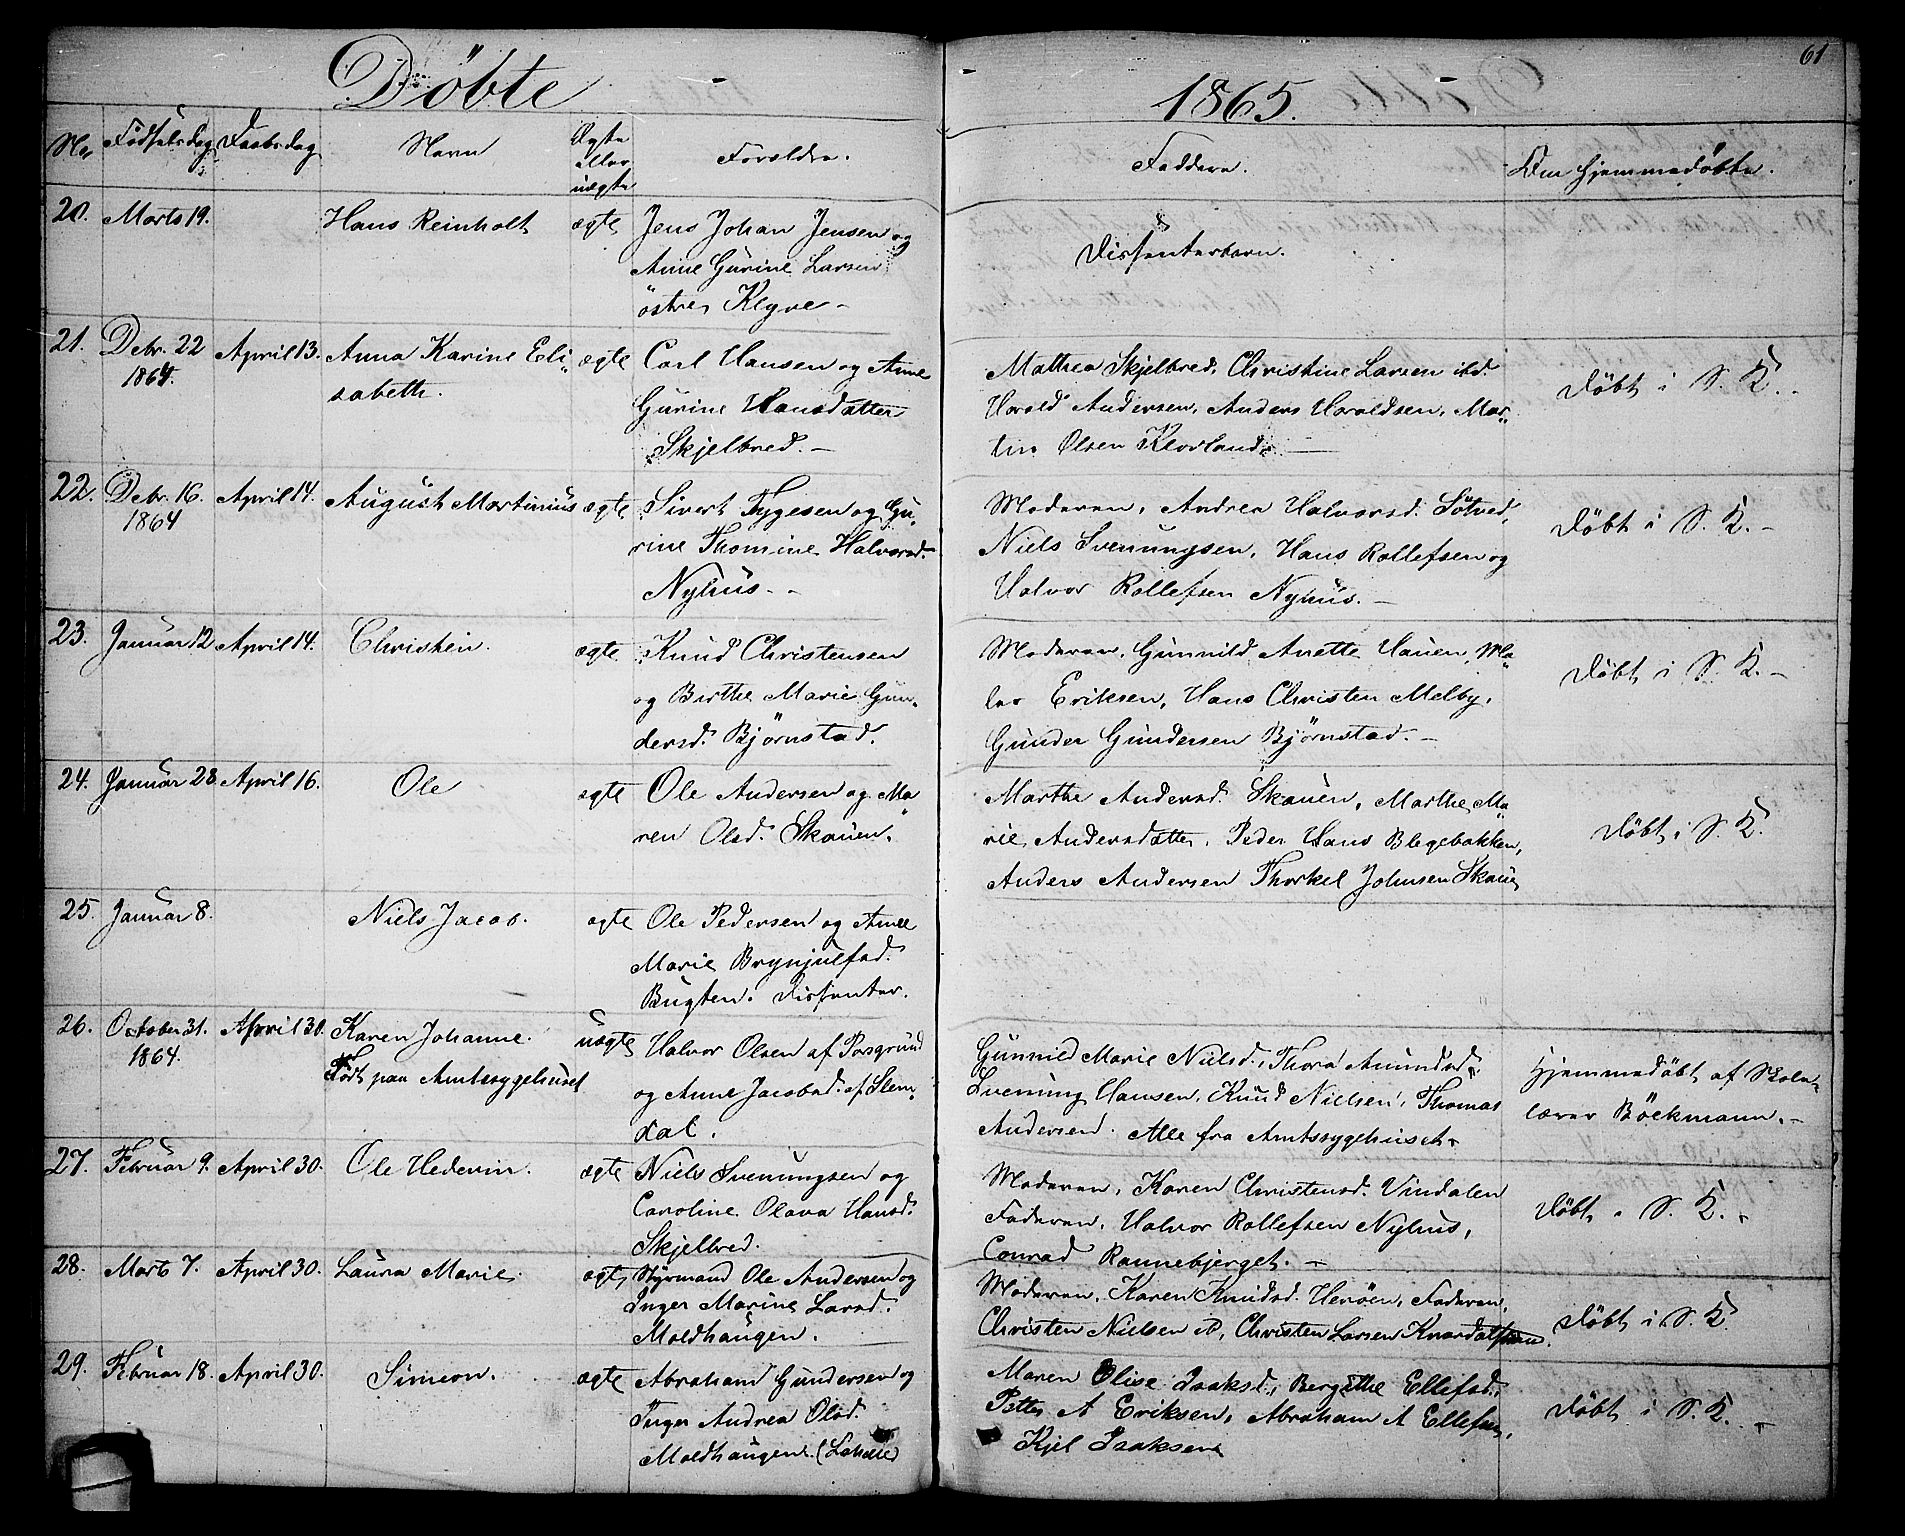 Döbte
1865.
61
No. Födselsdag Daabsdag Navn Ægte eller uægte Forældre. Faddere. Om hjemmedöbte.
20. Marts 19. Hans Reinholt ægte Jens Johan Jensen og
Anne Gurine Larsen
östre Klyve -
Dissenterbarn.
21. Debr. 22 April 13. Anna Karine Eli- ægte Carl Hansen og Anne
1864. sabeth. Gurine Hansdatter
Skjelbred. -
Mathea Skjelbred, Christine Larsen ibd.
Harald Andersen, Anders Haraldsen, Mar-
tin Olsen Klovland. -
Döbt i S. K. -
22. Debr. 16. April 14. August Martinius ægte Sivert Tygesen og Gu-
1864 rine Thomine Halvorsd.
Nyhus. -
Moderen, Andrea Halvorsd. Sötved,
Niels Svenungsen, Hans Rollefsen og
Halvor Rollefsen Nyhus. -
Döbt i S. K. -
23. Januar 12 April 14. Christen. ægte Knud Christensen
og Birthe Marie Gun-
dersd. Björnstad.
Moderen, Gunnild Anette Hauen, Ma-
ler Eriksen, Hans Christen Melby,
Gunder Gundersen Björnstad. -
Döbt i S. K. -
24. Januar 28 April 16. Ole ægte Ole Andersen og Ma-
ren Olsd. Skauen.
Marthe Andersd. Skauen, Marthe Ma-
rie Andersdatter, Peder Hans Blegebakken,
Anders Andersen Thorkel Johnsen Skauen
Döbt i S. K.
25. Januar 8. Niels Jacob. ægte Ole Pedersen og Anne
Marie Brynjulfsd.
Bugten. Dissenter.
26. October 31. April 30. Karen Johanne. uægte Halvor Olsen af Porsgrund
1864. Födt paa Amtssygehuset og Anne Jacobsd. af Slem-
dal.
Gunnild Marie Nielsd., Thora Amundsd.
Svenung Hansen, Knud Nielsen, Thomas
Andersen. Alle fra Amtssygehuset.
Hjemmedöbt af Skole-
lærer Böckmann. -
27. Februar 9. April 30. Ole Hedevin. ægte Niels Svenungsen og
Caroline Olava Hansd.
Skjelbred.
Moderen, Karen Christensd. Vindalen
Faderen, Halvor Rollefsen Nyhus,
Conrad Rannebjerget. -
Döbt i S. K. -
28. Marts 7. April 30. Laura Marie. ægte Styrmand Ole Andersen og
Inger Marine Larsd.
Moldhaugen.
Moderen, Karen Knudsd. Heröen, Faderen,
Christen Nielsen ib, Christen Larsen Knardalstrand.
Döbt i S. K.
29. Februar 18. April 30. Simeon. ægte Abraham Gundersen og
Inger Andrea Olsd.
Moldhaugen.
Maren Elise Isaksd., Bergithe Ellefsd.,
Petter A Eriksen, Abraham A Ellefsen,
Kjel Isaksen
Döbt i S. K. -